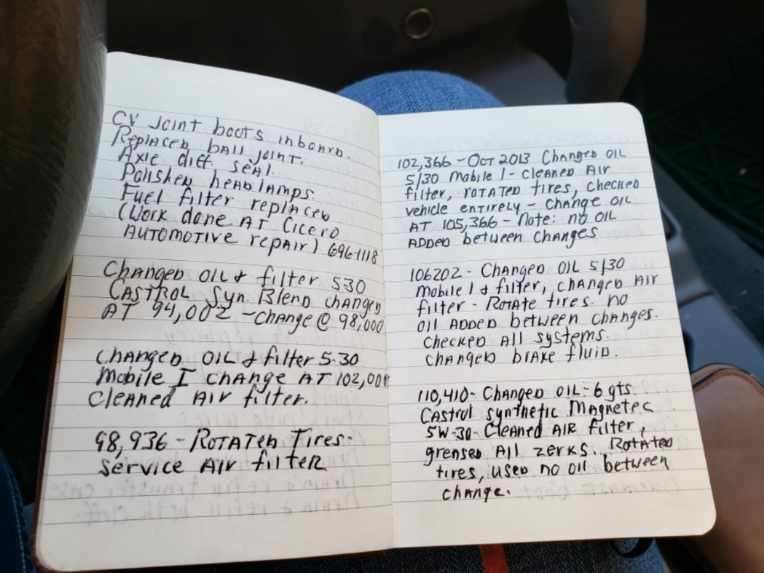 CV Joint boots inboard.
Replaced ball joint.
Axle diff. seal.
Polished headlamps.
Fuel filter replaced
(Work done at Cicero
Automotive repair) 696-1118
Changed oil & filter 5-30
Castrol Syn Blend changed
at 94,002 - change @ 98,000
Changed oil & filter 5-30
Mobile I change at 102,001
Cleaned air filter.
98,936 - Rotated Tires -
Service air filter
102,366 - Oct 2013 Changed oil
5/30 Mobile 1 - Cleaned Air
filter, rotated tires, checked
vehicle entirely - change oil
at 105,366 - Note: no oil
added between changes
106202 - Changed oil 5/30
Mobile 1 & filter, changed air
filter - Rotate tires. no
oil added between changes.
Checked all systems.
Changed brake fluid.
110,410 - Changed oil - 6 qts.
Castrol synthetic Magnetec
5W-30 - Cleaned air filter,
greased all zerks. Rotated
tires, used no oil between
change.